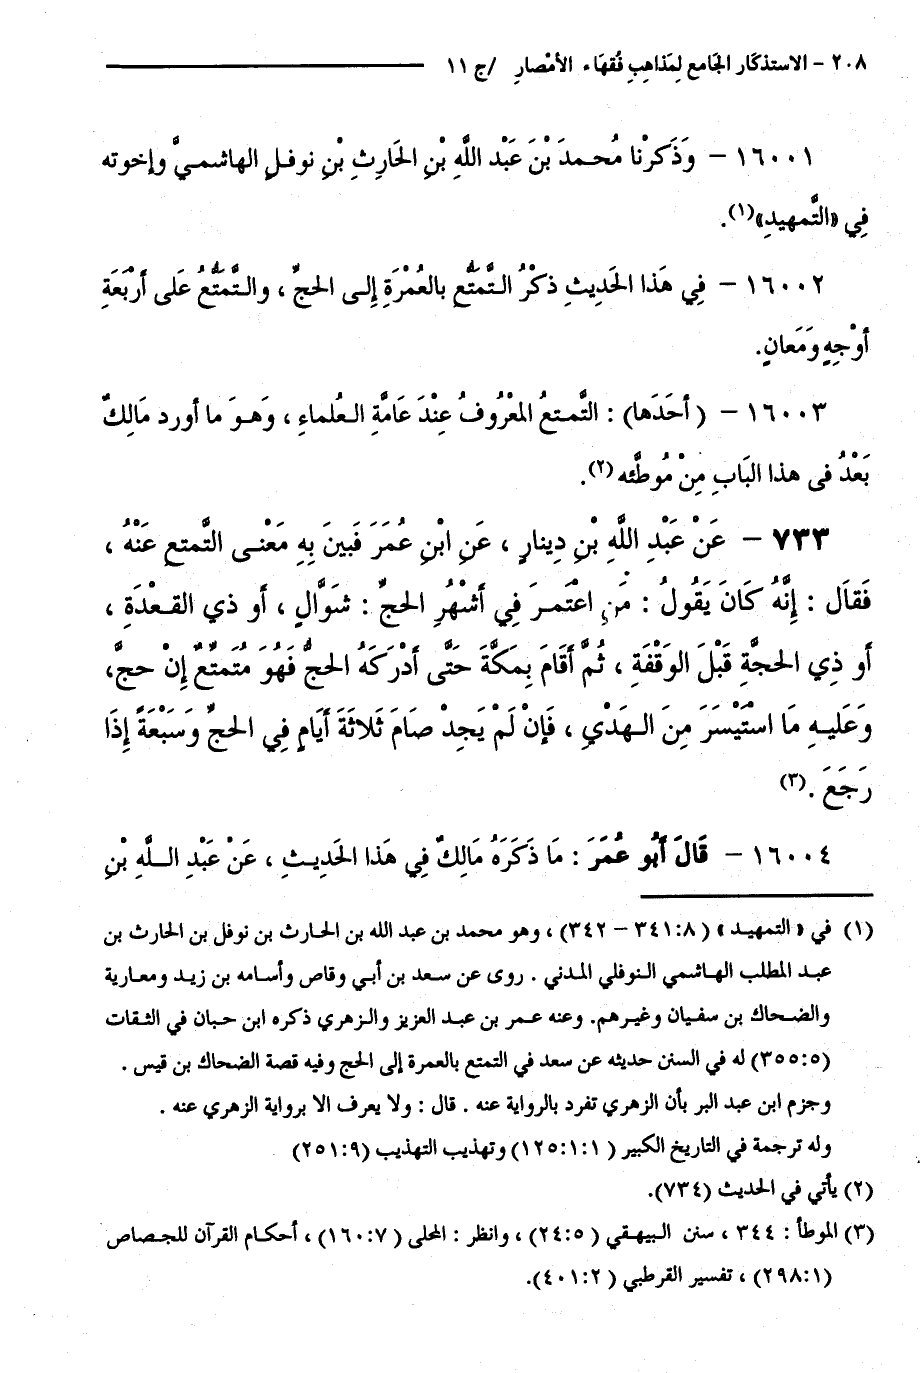 ٢٠٨ - الاستذكار الجَامع لِمَذاهِبِ فُقهَاء الأمْصارِ / ج ١١
١٦٠٠١ - وَذَكرْنا مُحـمدَ بْنَ عَبْد اللَّهِ بْنِ الحَارِثِ بْنِ نوفـلٍ الهاشمـيَّ وإخوته
فِي «التَّمهيدِ»(١).
١٦٠٠٢ - فِي هَذا الحَديثِ ذكْرُ الـتَّمَتُّعِ بالعُمْرَةِ إِلـى الحجِّ ، والـتَّمَتُّعُ عَلى أرْبَعَةِ
أوْجِهٍ وَمَعانٍ.
١٦٠٠٣ - (أحَدَها) : التَّمـتعُ المَعْرُوفُ عِنْدَ عَامَّةِ الـعُلماءِ ، وَهـوَ ما أورد مَالِكٌ
بَعْدُ فى هذا البَابِ مِنْ مُوطَّئه (٢).
٧٣٣ - عَنْ عَبْدِ اللَّهِ بْنِ دِينارٍ ، عَنِ ابْنِ عُمَرَ فَبينَ بِهِ مَعْنـى التَّمتعِ عَنْهُ ،
فَقَالَ : إِنَّهُ كَانَ يَقُولُ : مَنِ اعْتَمـرَ فِي أشْهُرِ الحجِّ : شَوَّالٍ ، أو ذي القـعْدَةِ ،
أو ذِي الحجَّةِ قَبْلَ الوَقْفَةِ ، ثُمَّ أقَامَ بِمَكَّةَ حَتَّى أدْرَكَهُ الحجُّ فَهُوَ مُتَمتِّعٌ إِنْ حجَّ،
وَعَليـهِ مَا اسْتَيْسَرَ مِنَ الـهَدْيِ ، فَإِنْ لَمْ يَجِدْ صَامَ ثَلاثَةَ أيَامٍ فِي الحجِّ وَسَبْعَةً إِذَا
رَجَعَ .(٣)
١٦٠٠٤ - قَالَ أبُو عُمَرَ : مَا ذكَرَهُ مَالِكٌ فِي هَذَا الحَديثِ ، عَنْ عَبْدِ الـلَّهِ بْنِ
(١) في « التمهيـد » (٨: ٣٤١ – ٣٤٢) ، وهو محمد بن عبد الله بن الحـارث بن نوفل بن الحارث بن
عبـد المطلب الهـاشمي الـنوفلي المـدني . روى عن سعد بن أبـي وقاص وأسـامه بن زيـد ومعارية
والضـحاك بن سفـيان وغيـرهم. وعنه عمـر بن عبد العزيز والـزهري ذكره ابن حبـان في الثـقات
(٥: ٣٥٥) له في السنن حديثه عن سعد في التمتع بالعمرة إلى الحج وفيه قصة الضحاك بن قيس .
وجزم ابن عبد البر بأن الزهري تفرد بالرواية عنه . قال : ولا يعرف الا برواية الزهري عنه .
وله ترجمة في التاريخ الكبير ( ١: ١: ١٢٥) وتهذيب التهذيب (٩: ٢٥١)
(٢) يأتي في الحديث (٧٣٤).
(٣) الموطأ : ٣٤٤ ، سنن البيهـقي ( ٥: ٢٤) ، وانظر : المحلى ( ٧: ١٦٠) ، أحكـام القرآن للجـصاص
(١: ٢٩٨) ، تفسير القرطبي ( ٢: ٤٠١).